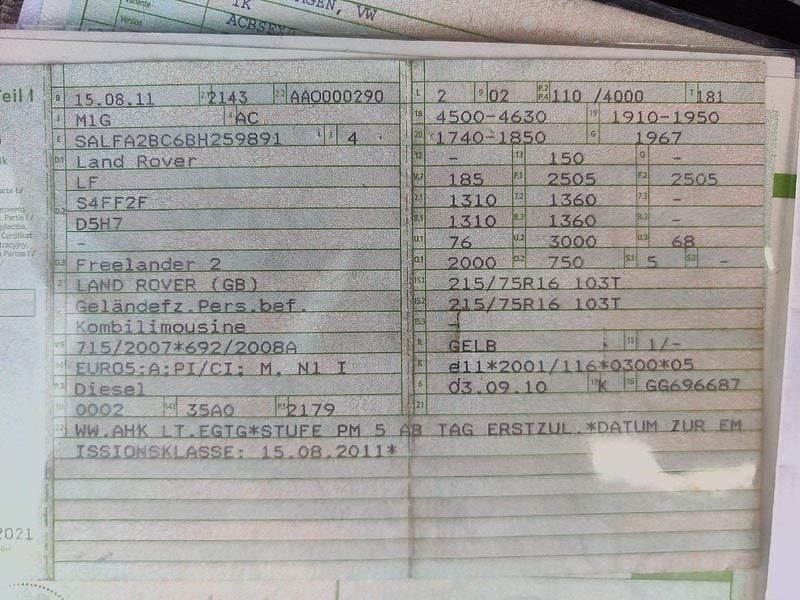 1K
AGEN, VW
Variante
Version
ACBSEX
Teil I
B 15.08.11 2.1 2143 2.2 AAO000290
J M1G 4 AC
E SALFA2BC6BH259891 3 4
D.1 Land Rover
LF
D.2 S4FF2F
D5H7
-
D.3 Freelander 2
2 LAND ROVER (GB)
5 Geländefz.Pers.bef.
Kombilimousine
V.9 715/2007*692/2008A
14 EURO5;A;PI/CI; M, N1 I
P.3 Diesel
10 0002 14.1 35A0 P.1 2179
22 WW.AHK LT.EGTG*STUFE PM 5 AB TAG ERSTZUL.*DATUM ZUR EM
ISSIONSKLASSE: 15.08.2011*
L 2 9 02 P.2 P.4 110 /4000 T 181
18 4500-4630 19 1910-1950
20 1740-1850 G 1967
12 - 13 150 Q -
V.7 185 F.1 2505 F.2 2505
7.1 1310 7.2 1360 7.3 -
8.1 1310 8.2 1360 8.3 -
U.1 76 U.2 3000 U.3 68
O.1 2000 O.2 750 S.1 5 S.2 -
15.1 215/75R16 103T
15.2 215/75R16 103T
15.3 -
R GELB 11 1/-
K e11*2001/116*0300*05
6 03.09.10 17 K 16 GG696687
21
2021